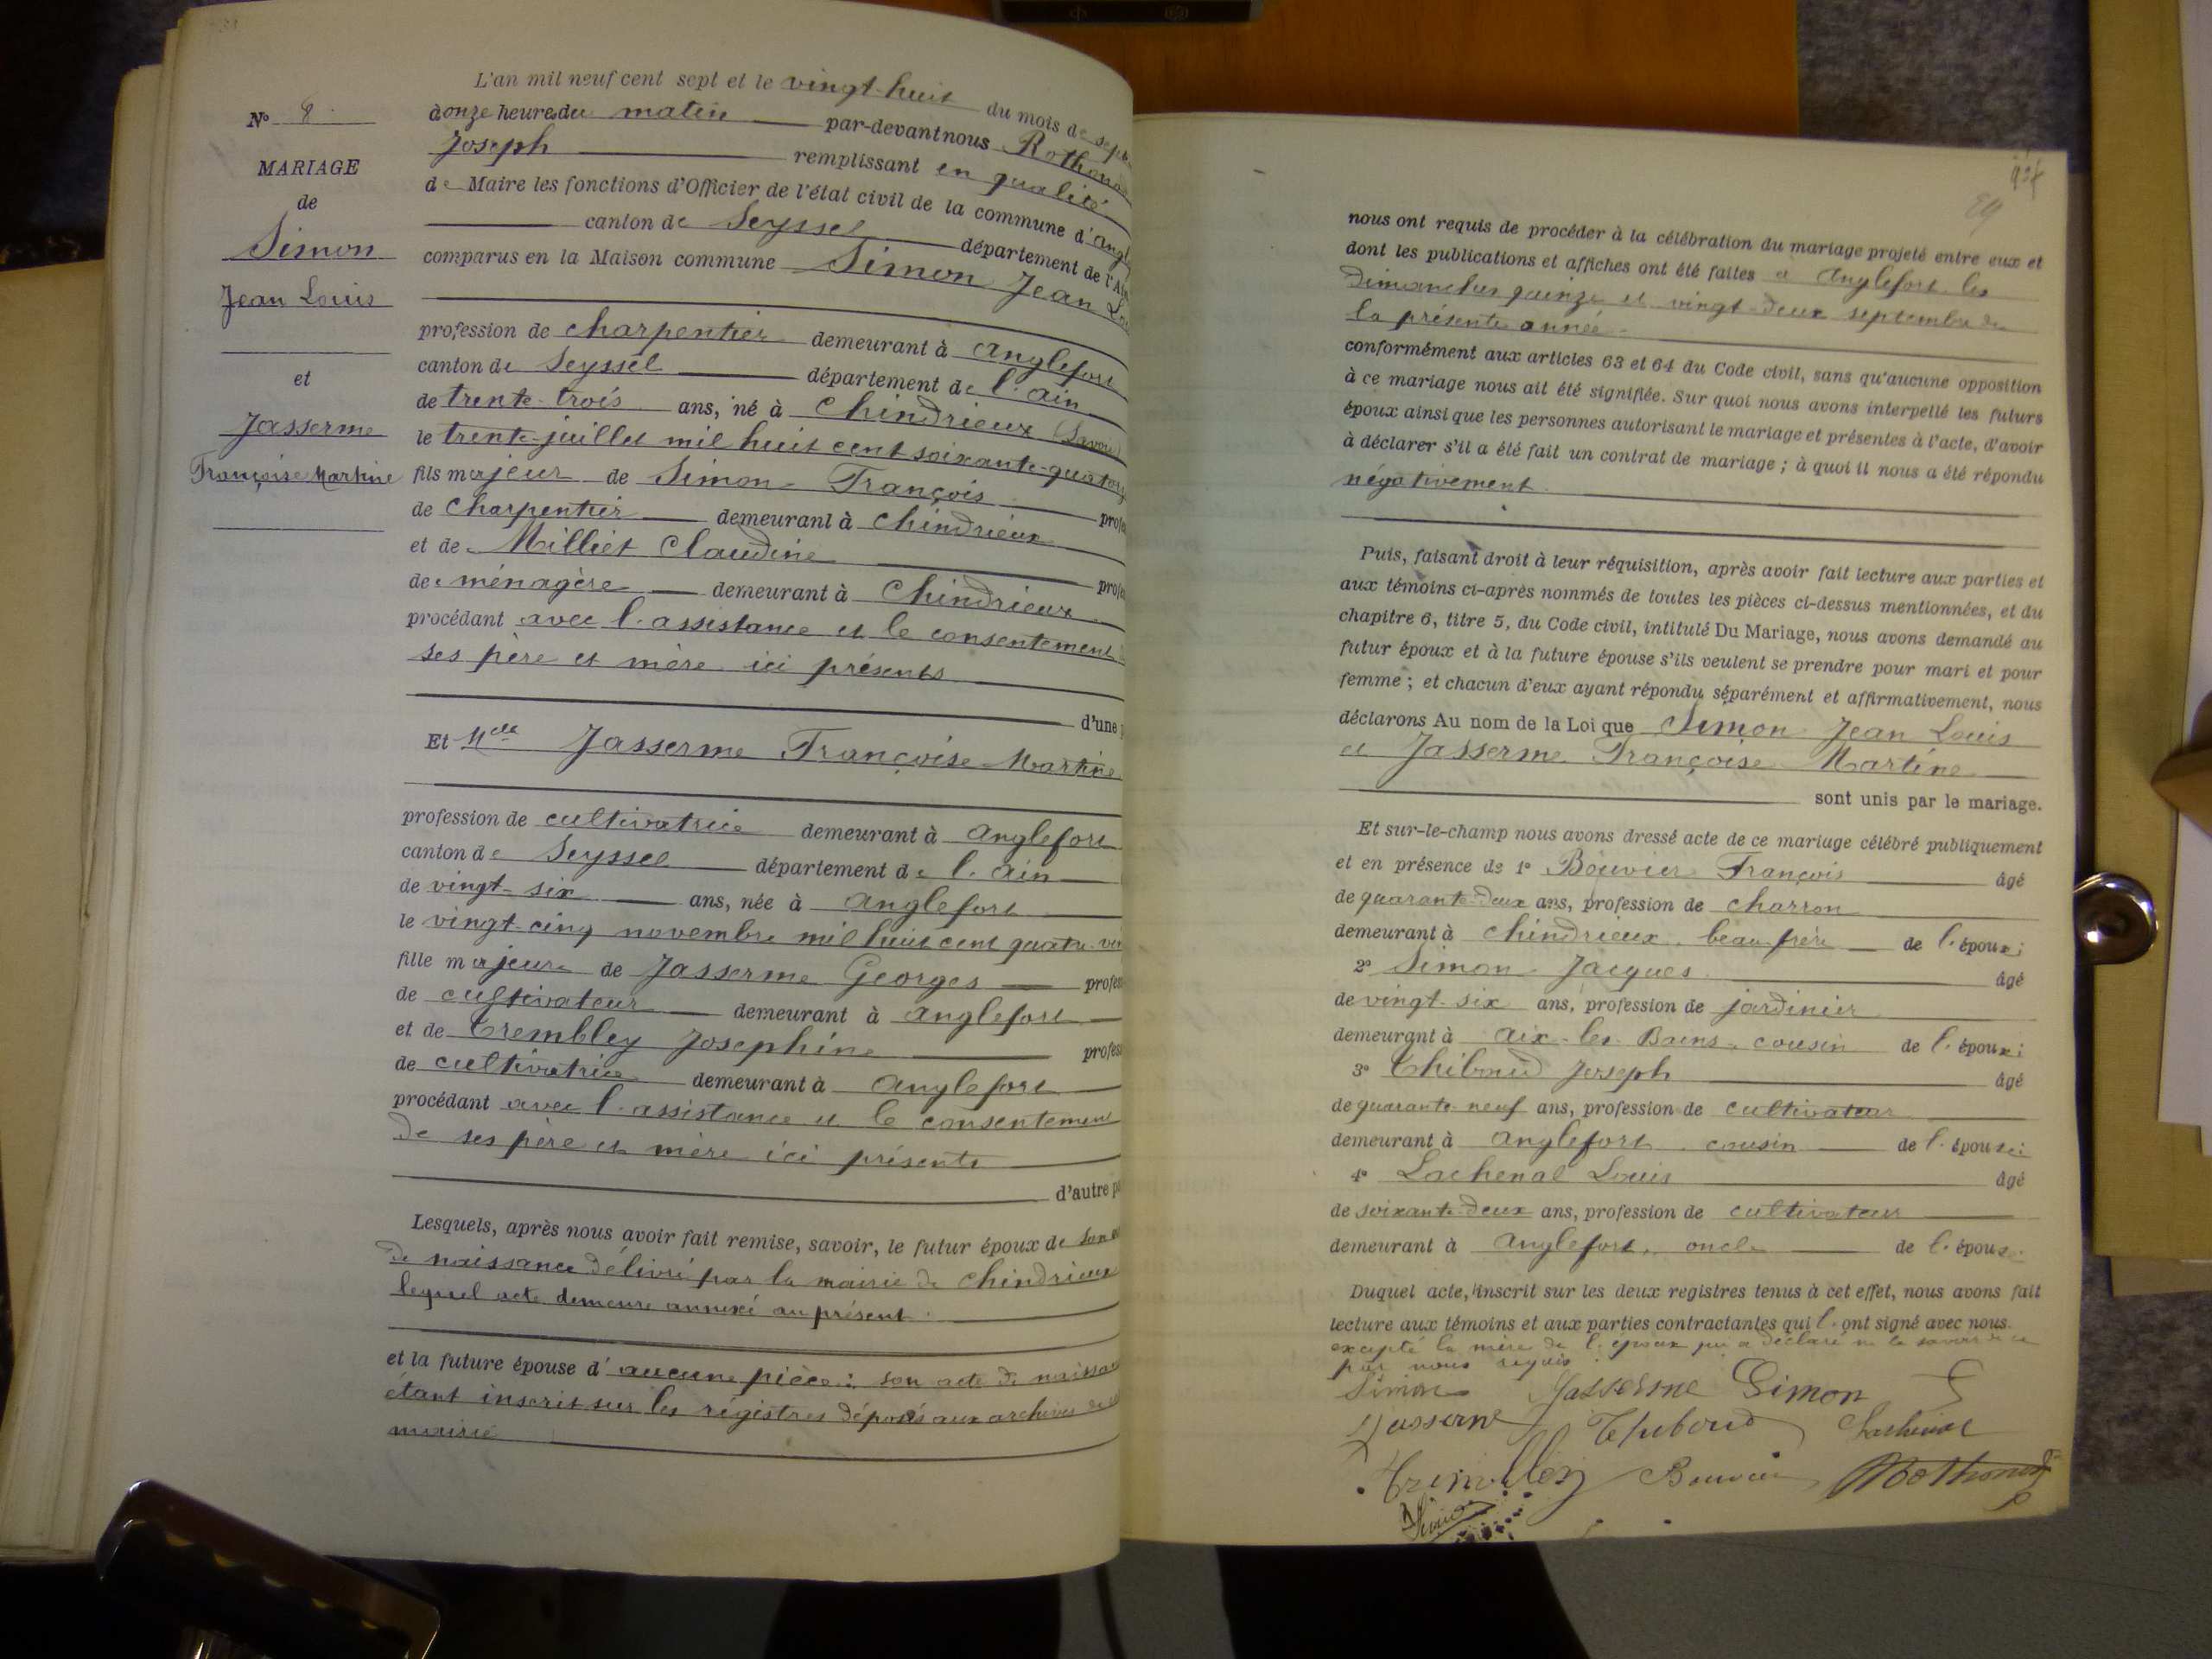 N° 8
MARIAGE
de
Simon
Jean Louis
et
Jasserme
Françoise Martine
L'an mil neuf cent sept et le vingt-huit du mois de sept
à onze heures du matin par-devant nous Rothonod
Joseph remplissant en qualité
de Maire les fonctions d'Officier de l'état civil de la commune d'Angl
canton de Seyssel département de l'Ain
comparus en la Maison commune Simon Jean Lou
profession de charpentier demeurant à Anglefort
canton de Seyssel département de l'Ain
de trente-trois ans, né à Chindrieux (Savoie)
le trente juillet mil huit cent soixante-quatorz
fils majeur de Simon François profe
de charpentier demeurant à Chindrieux
et de Milliet Claudine profe
de ménagère demeurant à Chindrieux
procédant avec l'assistance et le consentement
ses père et mère ici présents
d'une p
Et Melle Jasserme Françoise Martine
profession de cultivatrice demeurant à Anglefort
canton de Seyssel département de l'Ain
de vingt-six ans, née à Anglefort
le vingt-cinq novembre mil huit cent quatre-vin
fille majeure de Jasserme Georges profess
de cultivateur demeurant à Anglefort
et de Trembley Josephine profess
de cultivatrice demeurant à Anglefort
procédant avec l'assistance et le consentement
de ses père et mère ici présents
d'autre pa
Lesquels, après nous avoir fait remise, savoir, le futur époux de son
de naissance délivré par la mairie de Chindrieux
lequel acte demeure annexé au présent.
et la future épouse d'aucune pièce: son acte de naissa
étant inscrit sur les régistres déposés aux archives de
mairie
89
nous ont requis de procéder à la célébration du mariage projeté entre eux et
dont les publications et affiches ont été faites à Anglefort les
dimanches quinze et vingt-deux septembre de
la présente année
conformément aux articles 63 et 64 du Code civil, sans qu'aucune opposition
à ce mariage nous ait été signifiée. Sur quoi nous avons interpellé les futurs
époux ainsi que les personnes autorisant le mariage et présentes à l'acte, d'avoir
à déclarer s'il a été fait un contrat de mariage; à quoi il nous a été répondu
négativement.
Puis, faisant droit à leur réquisition, après avoir fait lecture aux parties et
aux témoins ci-après nommés de toutes les pièces ci-dessus mentionnées, et du
chapitre 6, titre 5, du Code civil, intitulé Du Mariage, nous avons demandé au
futur époux et à la future épouse s'ils veulent se prendre pour mari et pour
femme; et chacun d'eux ayant répondu séparément et affirmativement, nous
déclarons Au nom de la Loi que Simon Jean Louis
et Jasserme Françoise Martine
sont unis par le mariage.
Et sur-le-champ nous avons dressé acte de ce mariage célébré publiquement
et en présence de 1° Bouvier François âgé
de quarante-deux ans, profession de charron
demeurant à Chindrieux, beau frère de l'époux;
2° Simon Jacques âgé
de vingt-six ans, profession de jardinier
demeurant à Aix-les-Bains, cousin de l'époux;
3° Thiboud Joseph âgé
de quarante-neuf ans, profession de cultivateur
demeurant à Anglefort, cousin de l'épouse;
4° Lachenal Louis âgé
de soixante-deux ans, profession de cultivateur
demeurant à Anglefort, oncle de l'épouse.
Duquel acte, inscrit sur les deux registres tenus à cet effet, nous avons fait
lecture aux témoins et aux parties contractantes qui l'ont signé avec nous.
excepté la mère de l'époux qui a déclaré ne le savoir de ce
par nous requis.
Simon Jasserme Simon
Jasserme Thiboud Lachenal
Trembley Bouvier Rothonod
Simon